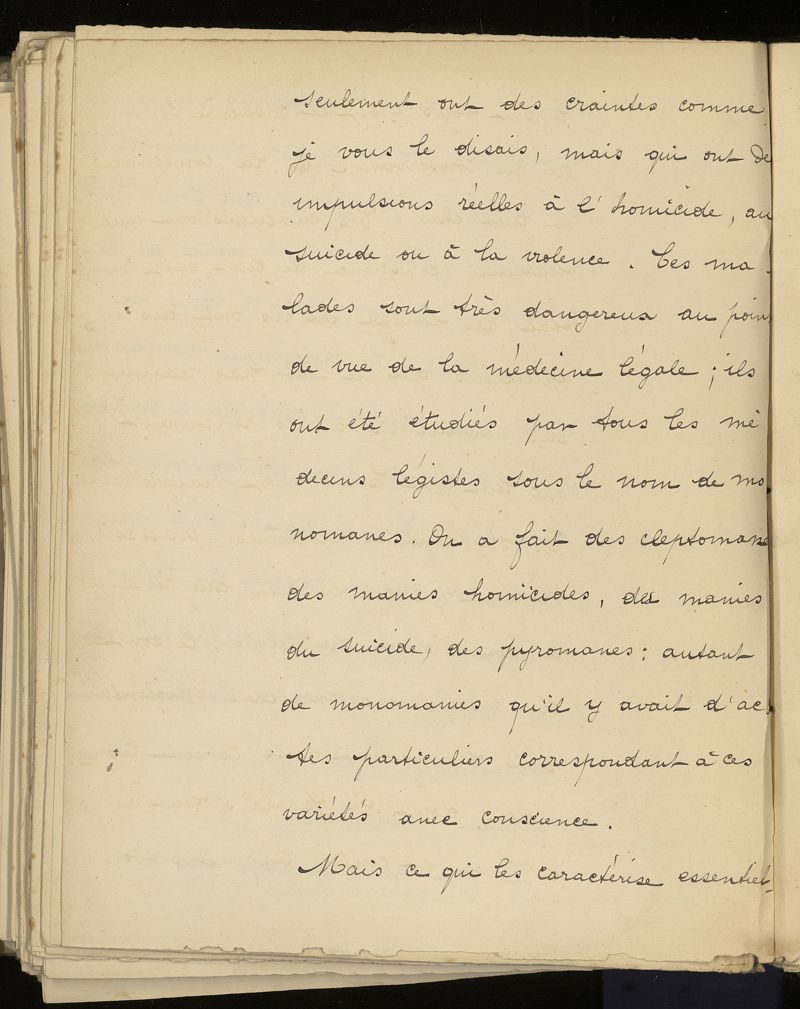 seulement ont des craintes comme
je vous le disais, mais qui ont de
impulsions réelles à l'homicide, au
suicide ou à la violence. Ces ma
lades sont très dangereux au poin
de vue de la médecine légale ; ils
ont été étudiés par tous les mé
decins légistes sous le nom de mo
nomanes. On a fait des cleptomane
des manies homicides, des manies
du suicide, des pyromanes : autant
de monomanies qu'il y avait d'ac
tes particuliers correspondant à ces
variétés avec conscience.
Mais ce qui les caractérise essentiel-